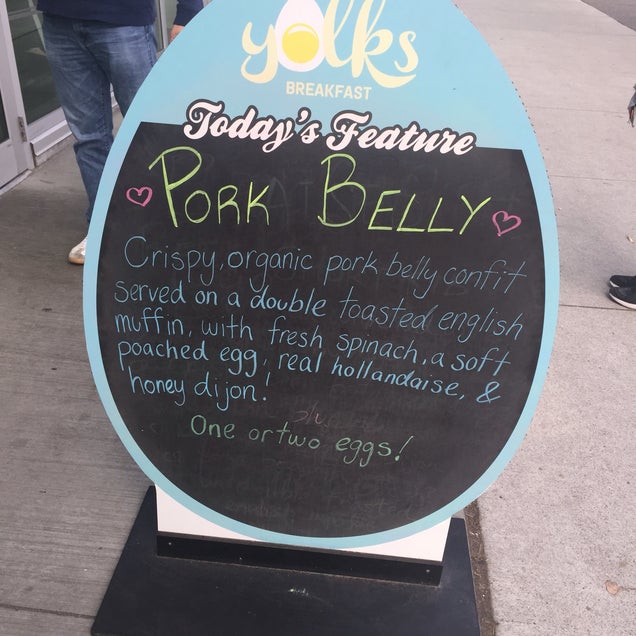 yolks
BREAKFAST
Today's Feature
PORK BELLY
Crispy, organic pork belly confit
served on a double toasted english
muffin, with fresh spinach, a soft
poached egg, real hollandaise, &
honey dijon!
One or two eggs!